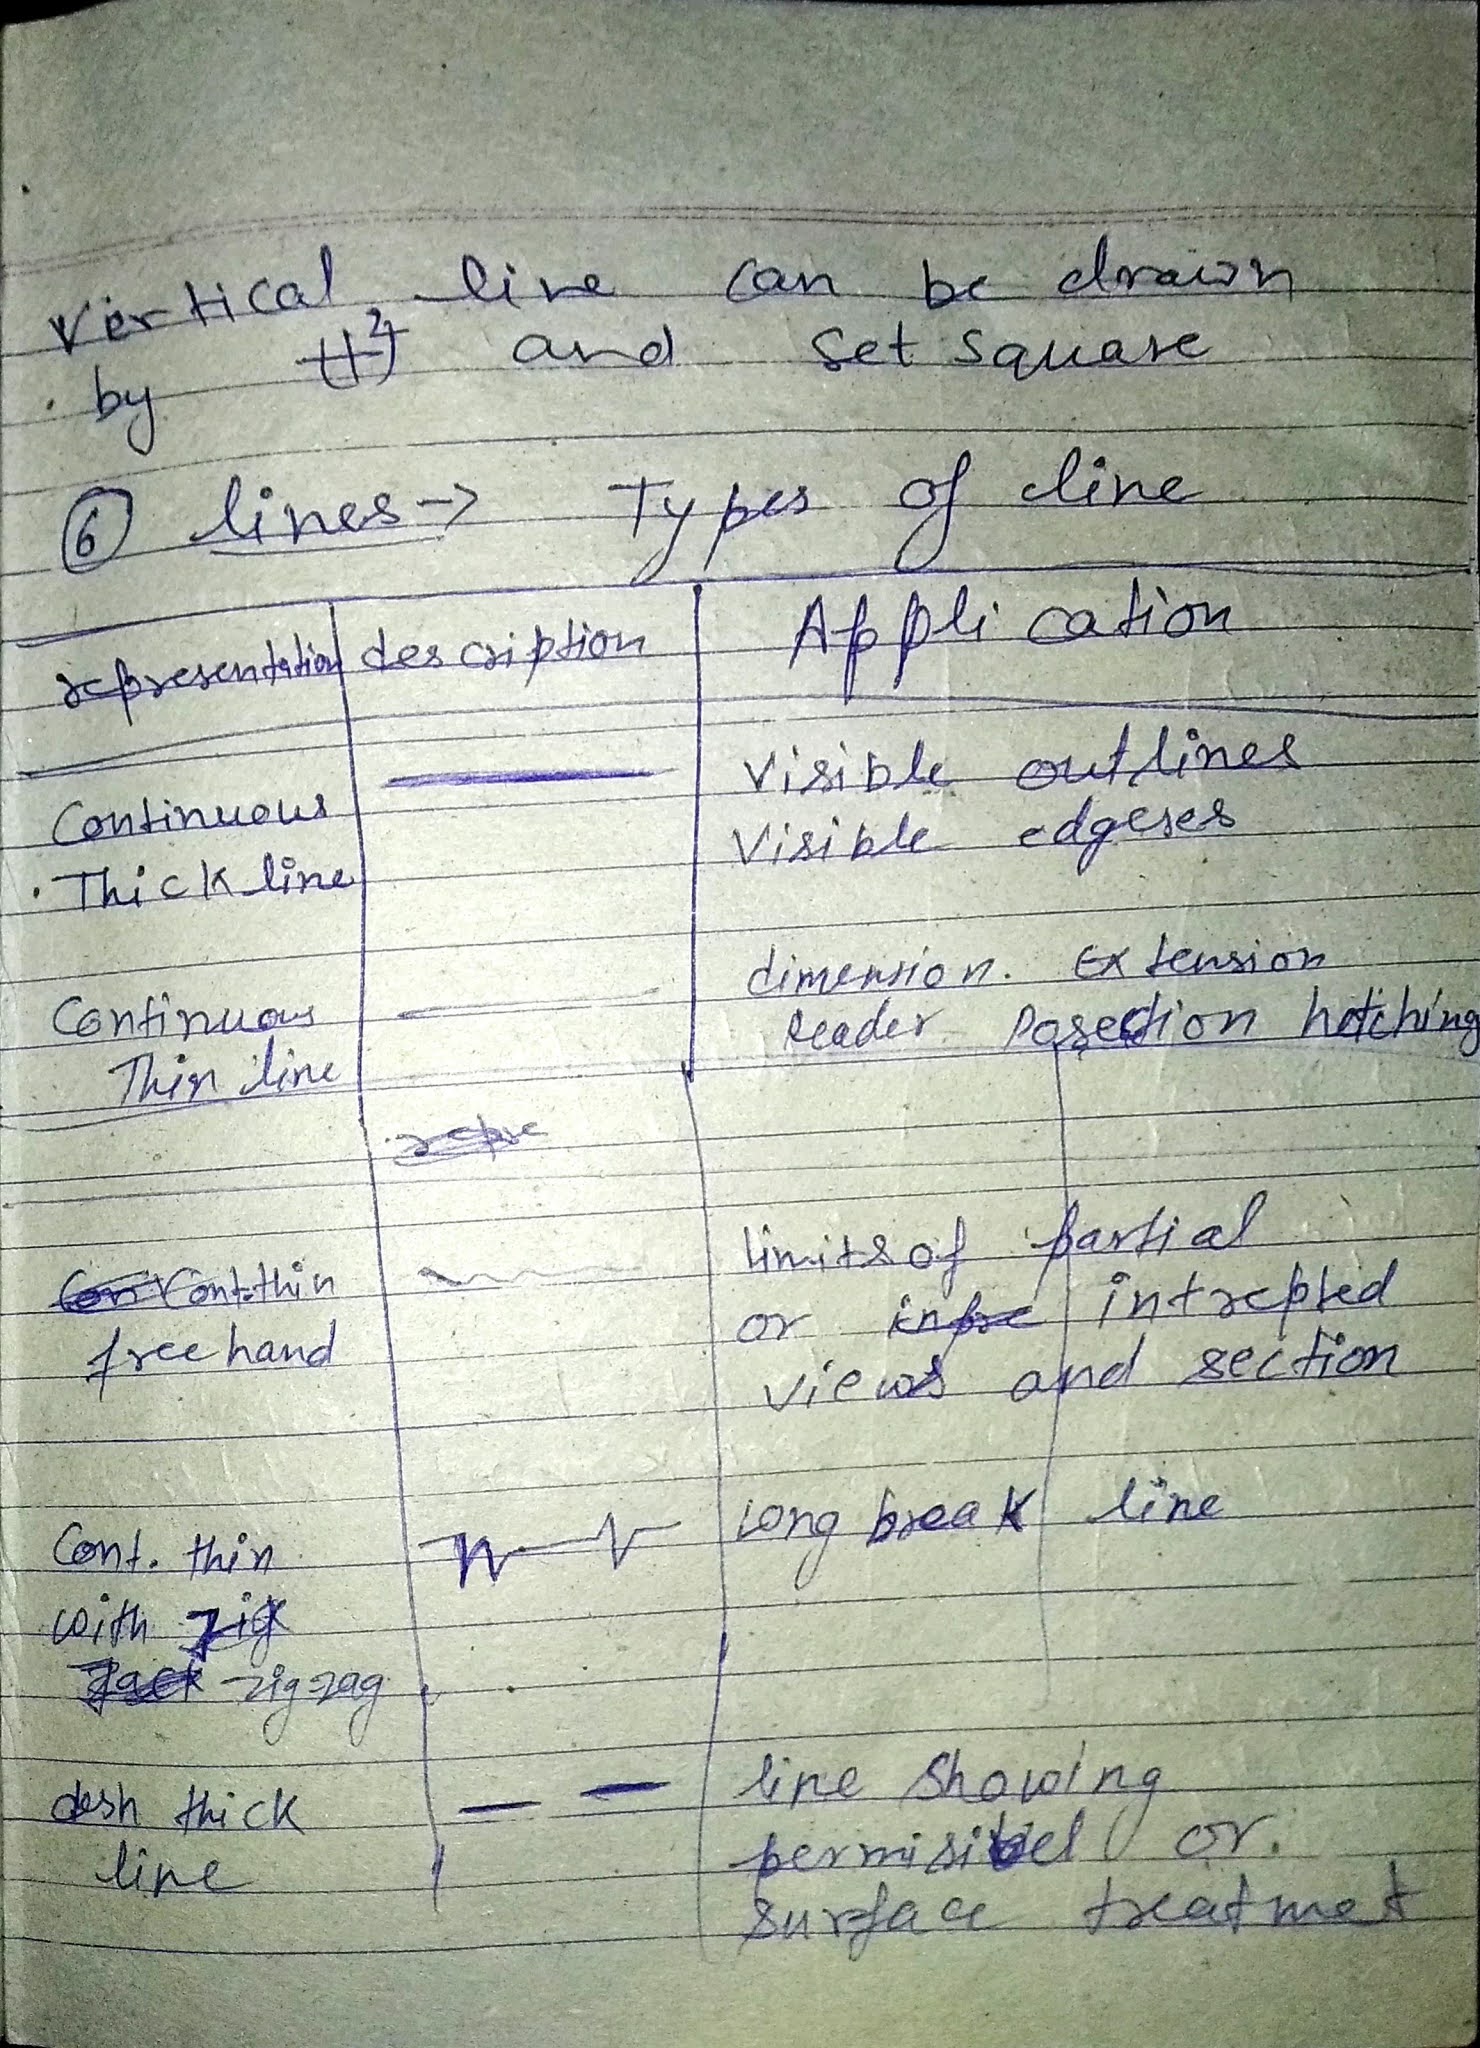 Vertical line can be drawn
by and set square
6 lines → Types of line
representation description Application
Continuous Thick line
Visible outlines
Visible edgeses
Continuous Thin line
dimension. Extension
Leader hatching
Cont. thin free hand
limits of partial
or intrepted
views and section
Cont. thin
with zig
zigzag
Long break line
desh thick
line
line showing
permisibel or.
surface treatmet